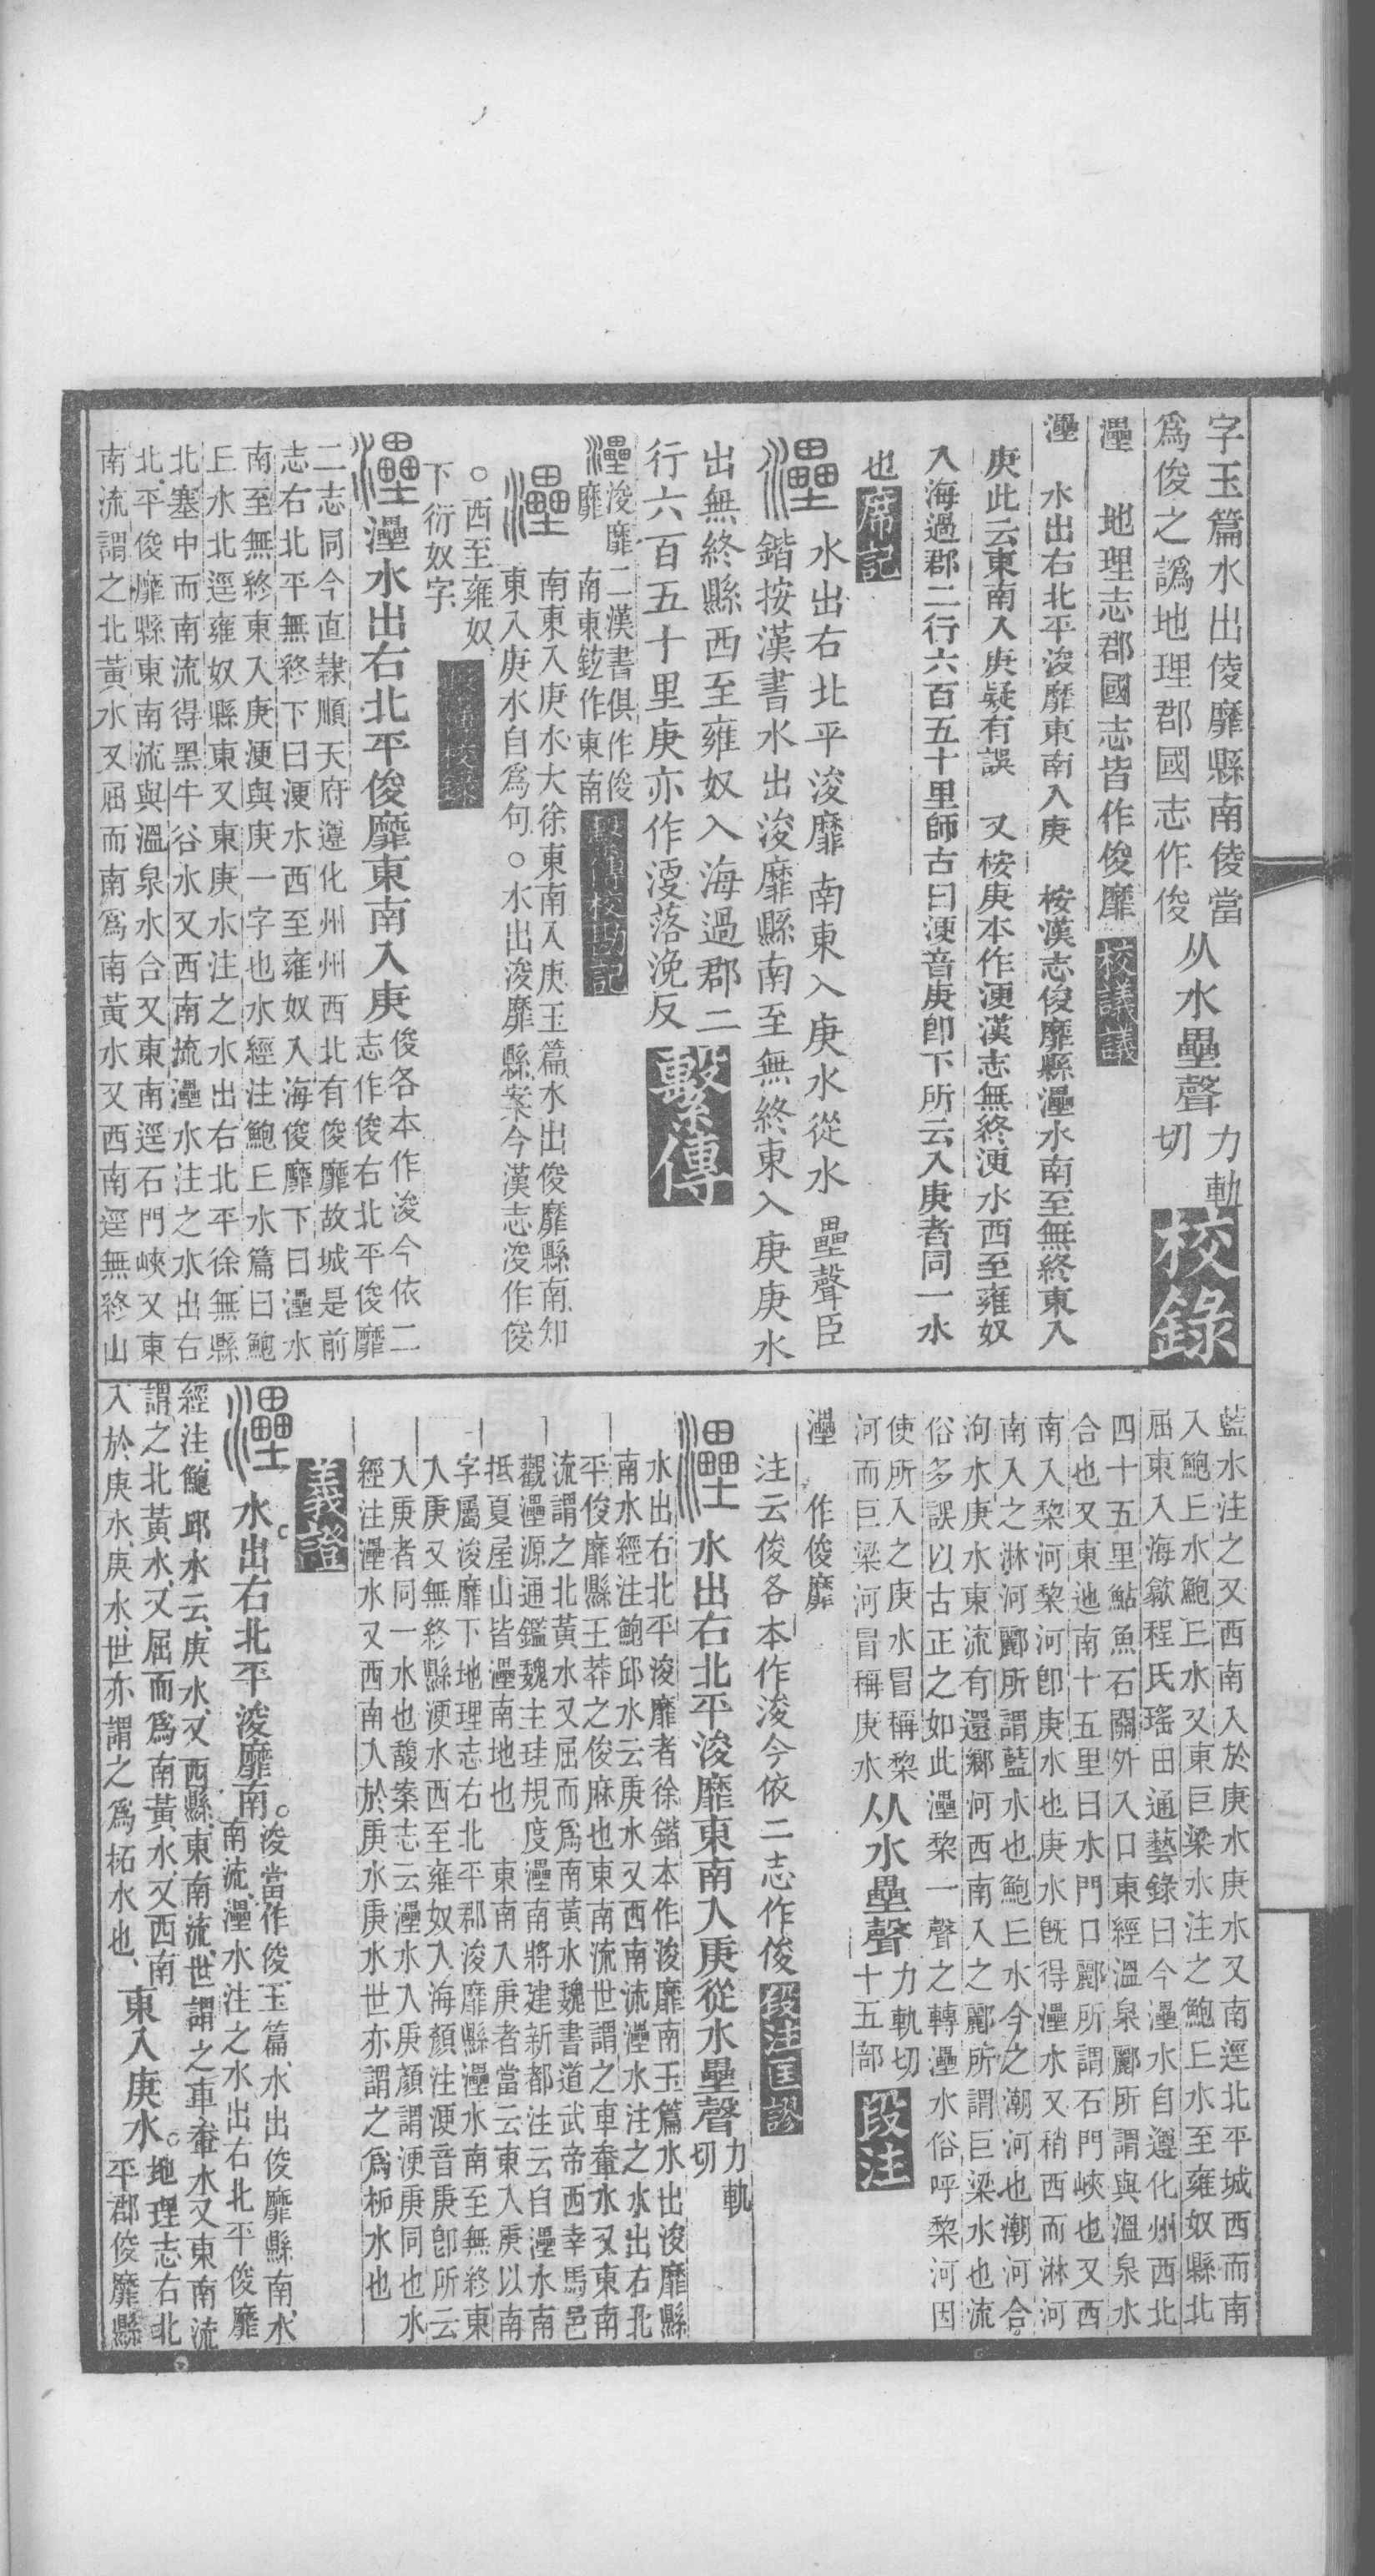 字玉篇水出倰靡縣南倰當
爲俊之譌地理郡國志作俊
从水壘聲
力軌
切
校錄
灅　地理志郡國志皆作俊靡
校議議
灅　水出右北平浚靡東南入庚　桉漢志俊靡縣灅水南至無終東入
庚此云東南入庚疑有誤　又桉庚本作浭漢志無終浭水西至雍奴
入海過郡二行六百五十里師古曰浭音庚卽下所云入庚者同一水
也
席記
灅水出右北平浚靡南東入庚水從水壘聲臣
鍇按漢書水出浚靡縣南至無終東入庚庚水
出無終縣西至雍奴入海過郡二
行六百五十里庚亦作浭落浼反
繫傳
灅浚靡二漢書俱作俊
靡　南東鉉作東南
繫傳校勘記
灅
南東入庚水大徐東南入庚玉篇水出俊靡縣南知
東入庚水自爲句○水出浚靡縣案今漢志浚作俊
○西至雍奴
下衍奴字
繫傳校錄
灅灅水出右北平俊靡東南入庚
俊各本作浚今依二
志作俊右北平俊靡
二志同今直隷順天府遵化州州西北有俊靡故城是前
志右北平無終下曰浭水西至雍奴入海俊靡下曰灅水
南至無終東入庚浭與庚一字也水經注鮑丘水篇曰鮑
丘水北逕雍奴縣東又東庚水注之水出右北平徐無縣
北塞中而南流得黑牛谷水又西南流灅水注之水出右
北平俊靡縣東南流與溫泉水合又東南逕石門峽又東
南流謂之北黃水又屈而南爲南黃水又西南逕無終山
藍水注之又西南入於庚水庚水又南逕北平城西而南
入鮑丘水鮑丘水又東巨梁水注之鮑丘水至雍奴縣北
屈東入海歙程氏瑤田通藝錄曰今灅水自遵化州西北
四十五里鮎魚石關外入口東經溫泉酈所謂與溫泉水
合也又東迆南十五里曰水門口酈所謂石門峽也又西
南入棃河棃河卽庚水也庚水旣得灅水又稍西而淋河
南入之淋河酈所謂藍水也鮑丘水今之潮河也潮河合
泃水庚水東流有還鄉河西南入之酈所謂巨梁水也流
俗多誤以古正之如此灅棃一聲之轉灅水俗呼棃河因
使所入之庚水冒稱棃
河而巨梁河冒稱庚水
从水壘聲
力軌切
十五部
段注
灅　作俊靡
注云俊各本作浚今依二志作俊
段注匡謬
灅水出右北平浚靡東南入庚從水壘聲
力軌
切
水出右北平浚靡者徐鍇本作浚靡南玉篇水出浚靡縣
南水經注鮑邱水云庚水又西南流灅水注之水出右北
平俊靡縣王莽之俊麻也東南流世謂之車軬水又東南
流謂之北黃水又屈而爲南黃水魏書道武帝西幸馬邑
觀灅源通鑑魏主珪規度灅南將建新都注云自灅水南
抵夏屋山皆灅南地也　東南入庚者當云東入庚以南
字屬浚靡下地理志右北平郡浚靡縣灅水南至無終東
入庚又無終縣浭水西至雍奴入海顏注浭音庚卽所云
入庚者同一水也馥案志云灅水入庚顏謂浭庚同也水
經注灅水又西南入於庚水庚水世亦謂之爲柘水也
義證
灅水出右北平浚靡南。
浚當作俊玉篇水出俊靡縣南水
南流灅水注之水出右北平俊靡
經注鮑邱水云庚水又西縣東南流世謂之車軬水又東南流
謂之北黃水又屈而爲南黃水又西南
入於庚水庚水世亦謂之爲柘水也
東入庚水。
地理志右北
平郡俊靡縣